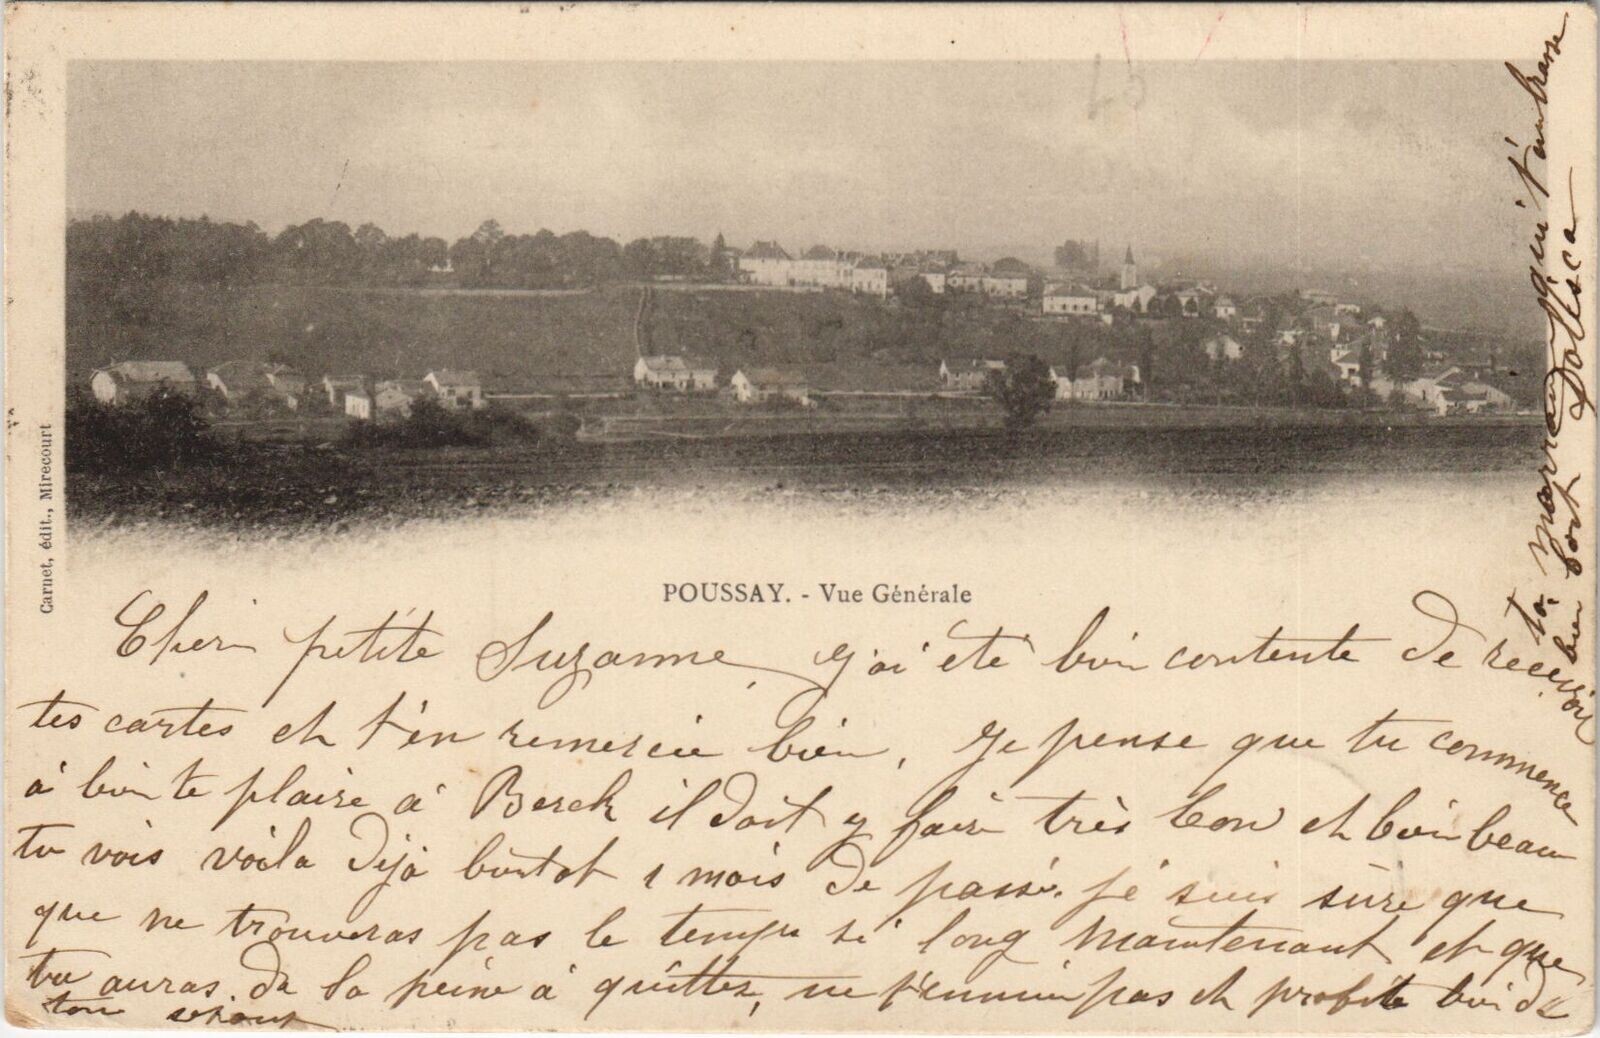 Carnet, édit., Mirecourt
POUSSAY. - Vue Générale
Cheri petite Suzanne, j'ai été bien contente de recevoir
tes cartes et t'en remercie bien, je pense que tu commence
à bien te plaire à Berck il doit y faire très bon et bien beau
tu vois voila déjà bientot 1 mois de passé. je suis sûre que
que ne trouveras pas le temps si long maintenant et que
tu auras de la peine à quitter, ne t'ennuie pas et profite bien de
ton
ta marraine qui t'embrasse
bien fort